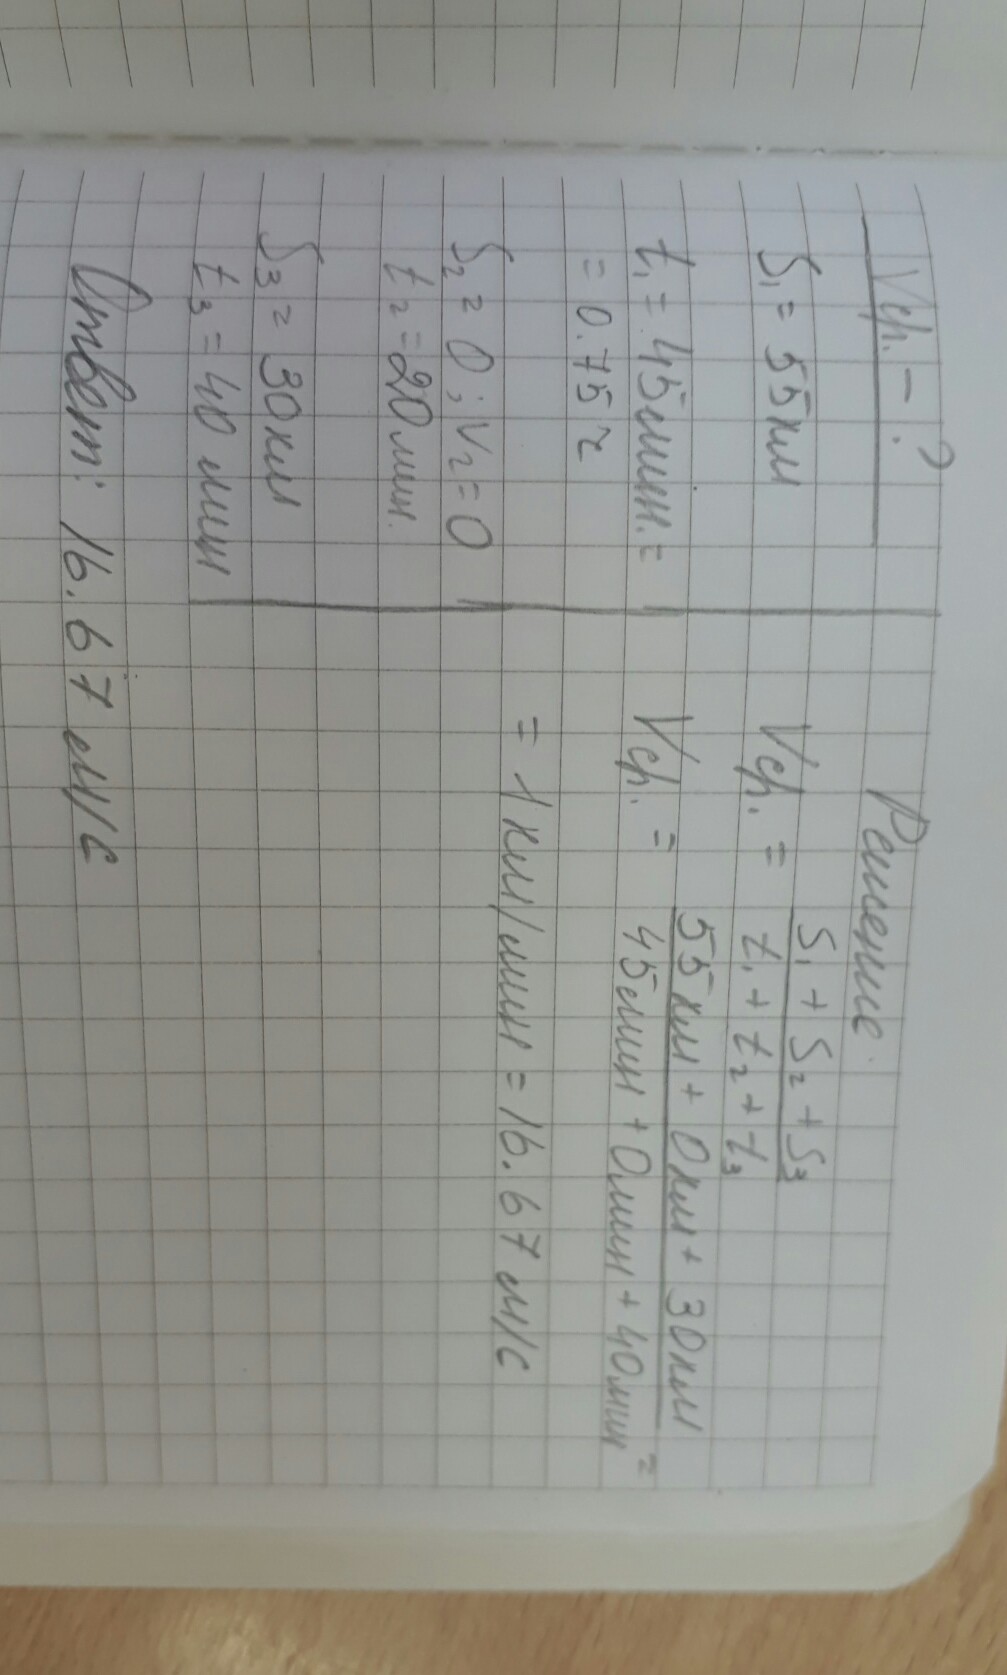 Vср. - ?
S₁ = 55км
t₁ = 45мин. =
= 0.75 ч
S₂ = 0 ; V₂ = 0
t₂ = 20мин.
S₃ = 30км
t₃ = 40 мин
Решение.
Vср. = (S₁ + S₂ + S₃) / (t₁ + t₂ + t₃)
Vср. = (55км + 0км + 30км) / (45мин + 0мин + 40мин) =
= 1 км/мин = 16.67 м/с
Ответ: 16.67 м/с